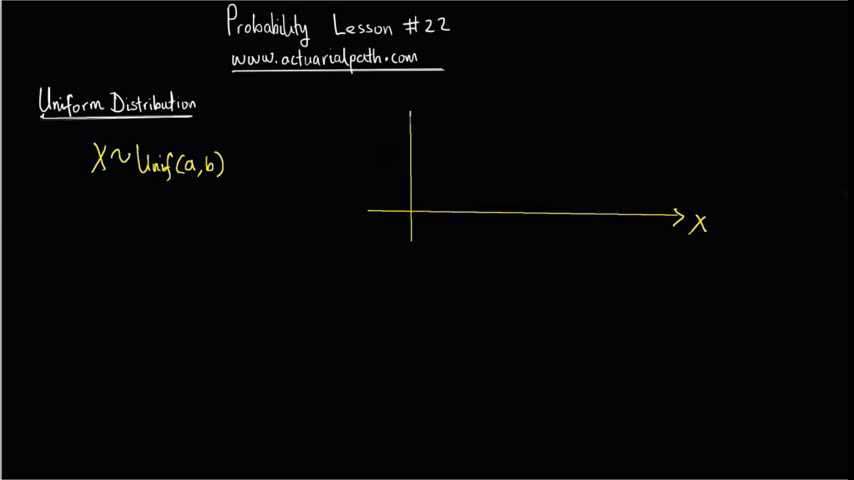 Probability Lesson #22
www.actuarialpath.com
Uniform Distribution
X~Unif(a,b)
X